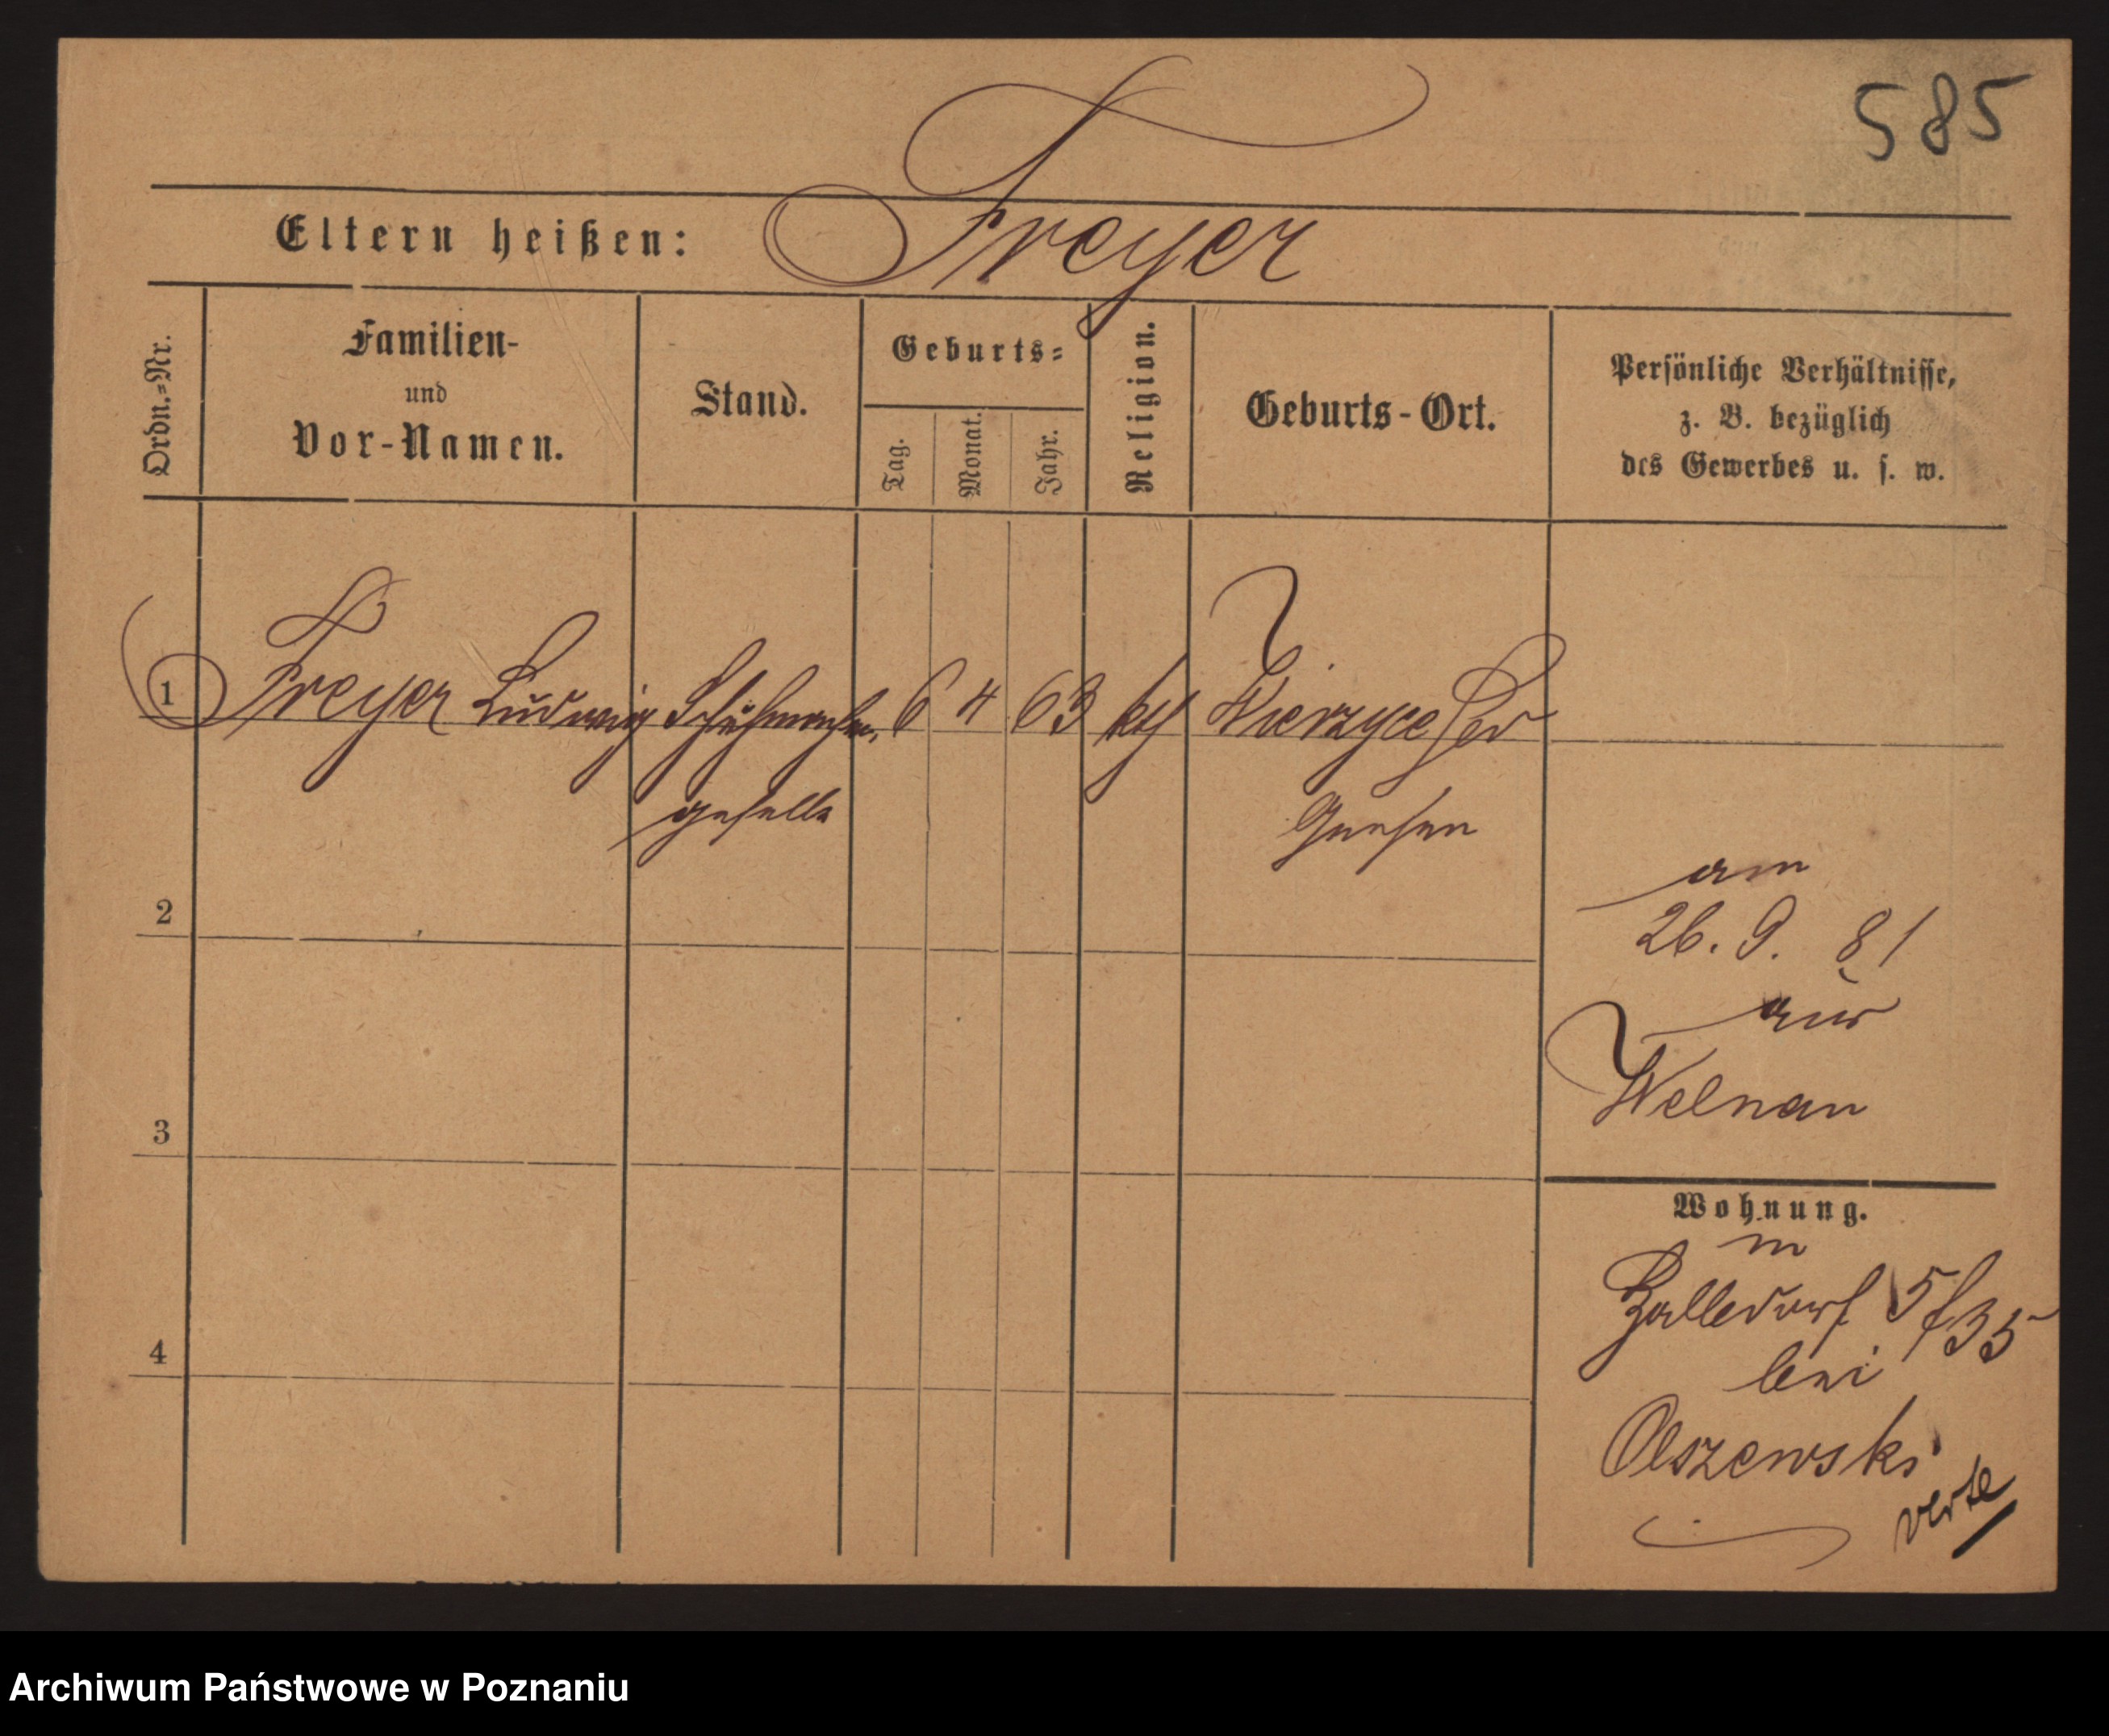 585
Eltern heißen: Freyer
Ordn.=Nr.
Familien-
und
Vor-Namen.
Stand.
Geburts=
Tag.
Monat.
Jahr.
Religion.
Geburts-Ort.
Persönliche Verhältnisse,
z. B. bezüglich
des Gewerbes u. s. w.
1 Freyer Ludwig Schuhmacher 6 4 63 kth Wierzyce
geselle Gnesen
2
am
26. 9. 81
aus
Welnau
3
Wohnung.
in
5/35
bei
4
Olszewski
verte
Archiwum Państwowe w Poznaniu